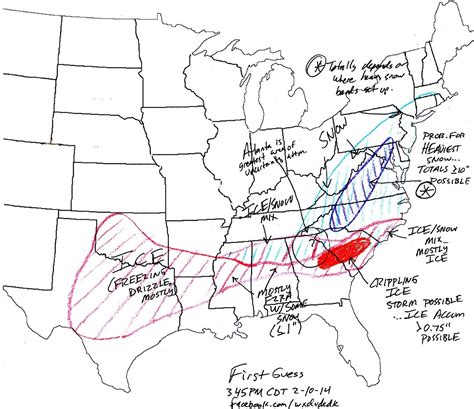 * Totally depends on
where heavy snow
bands set up.
Atlanta is
greatest area of
uncertainty attm.
SNOW
PROB. FOR
HEAVIEST
SNOW...
TOTALS ≥10"
POSSIBLE
*
ICE/SNOW
MIX
ICE/SNOW
MIX
MOSTLY
ICE
ICE
(FREEZING
DRIZZLE
MOSTLY)
MOSTLY
FZRA
W/ SOME
SNOW
(≤1")
CRIPPLING
ICE
STORM POSSIBLE
...ICE ACCUM
>0.75"
POSSIBLE
First Guess
345PM CDT 2-10-14
facebook.com/wxdvdedk